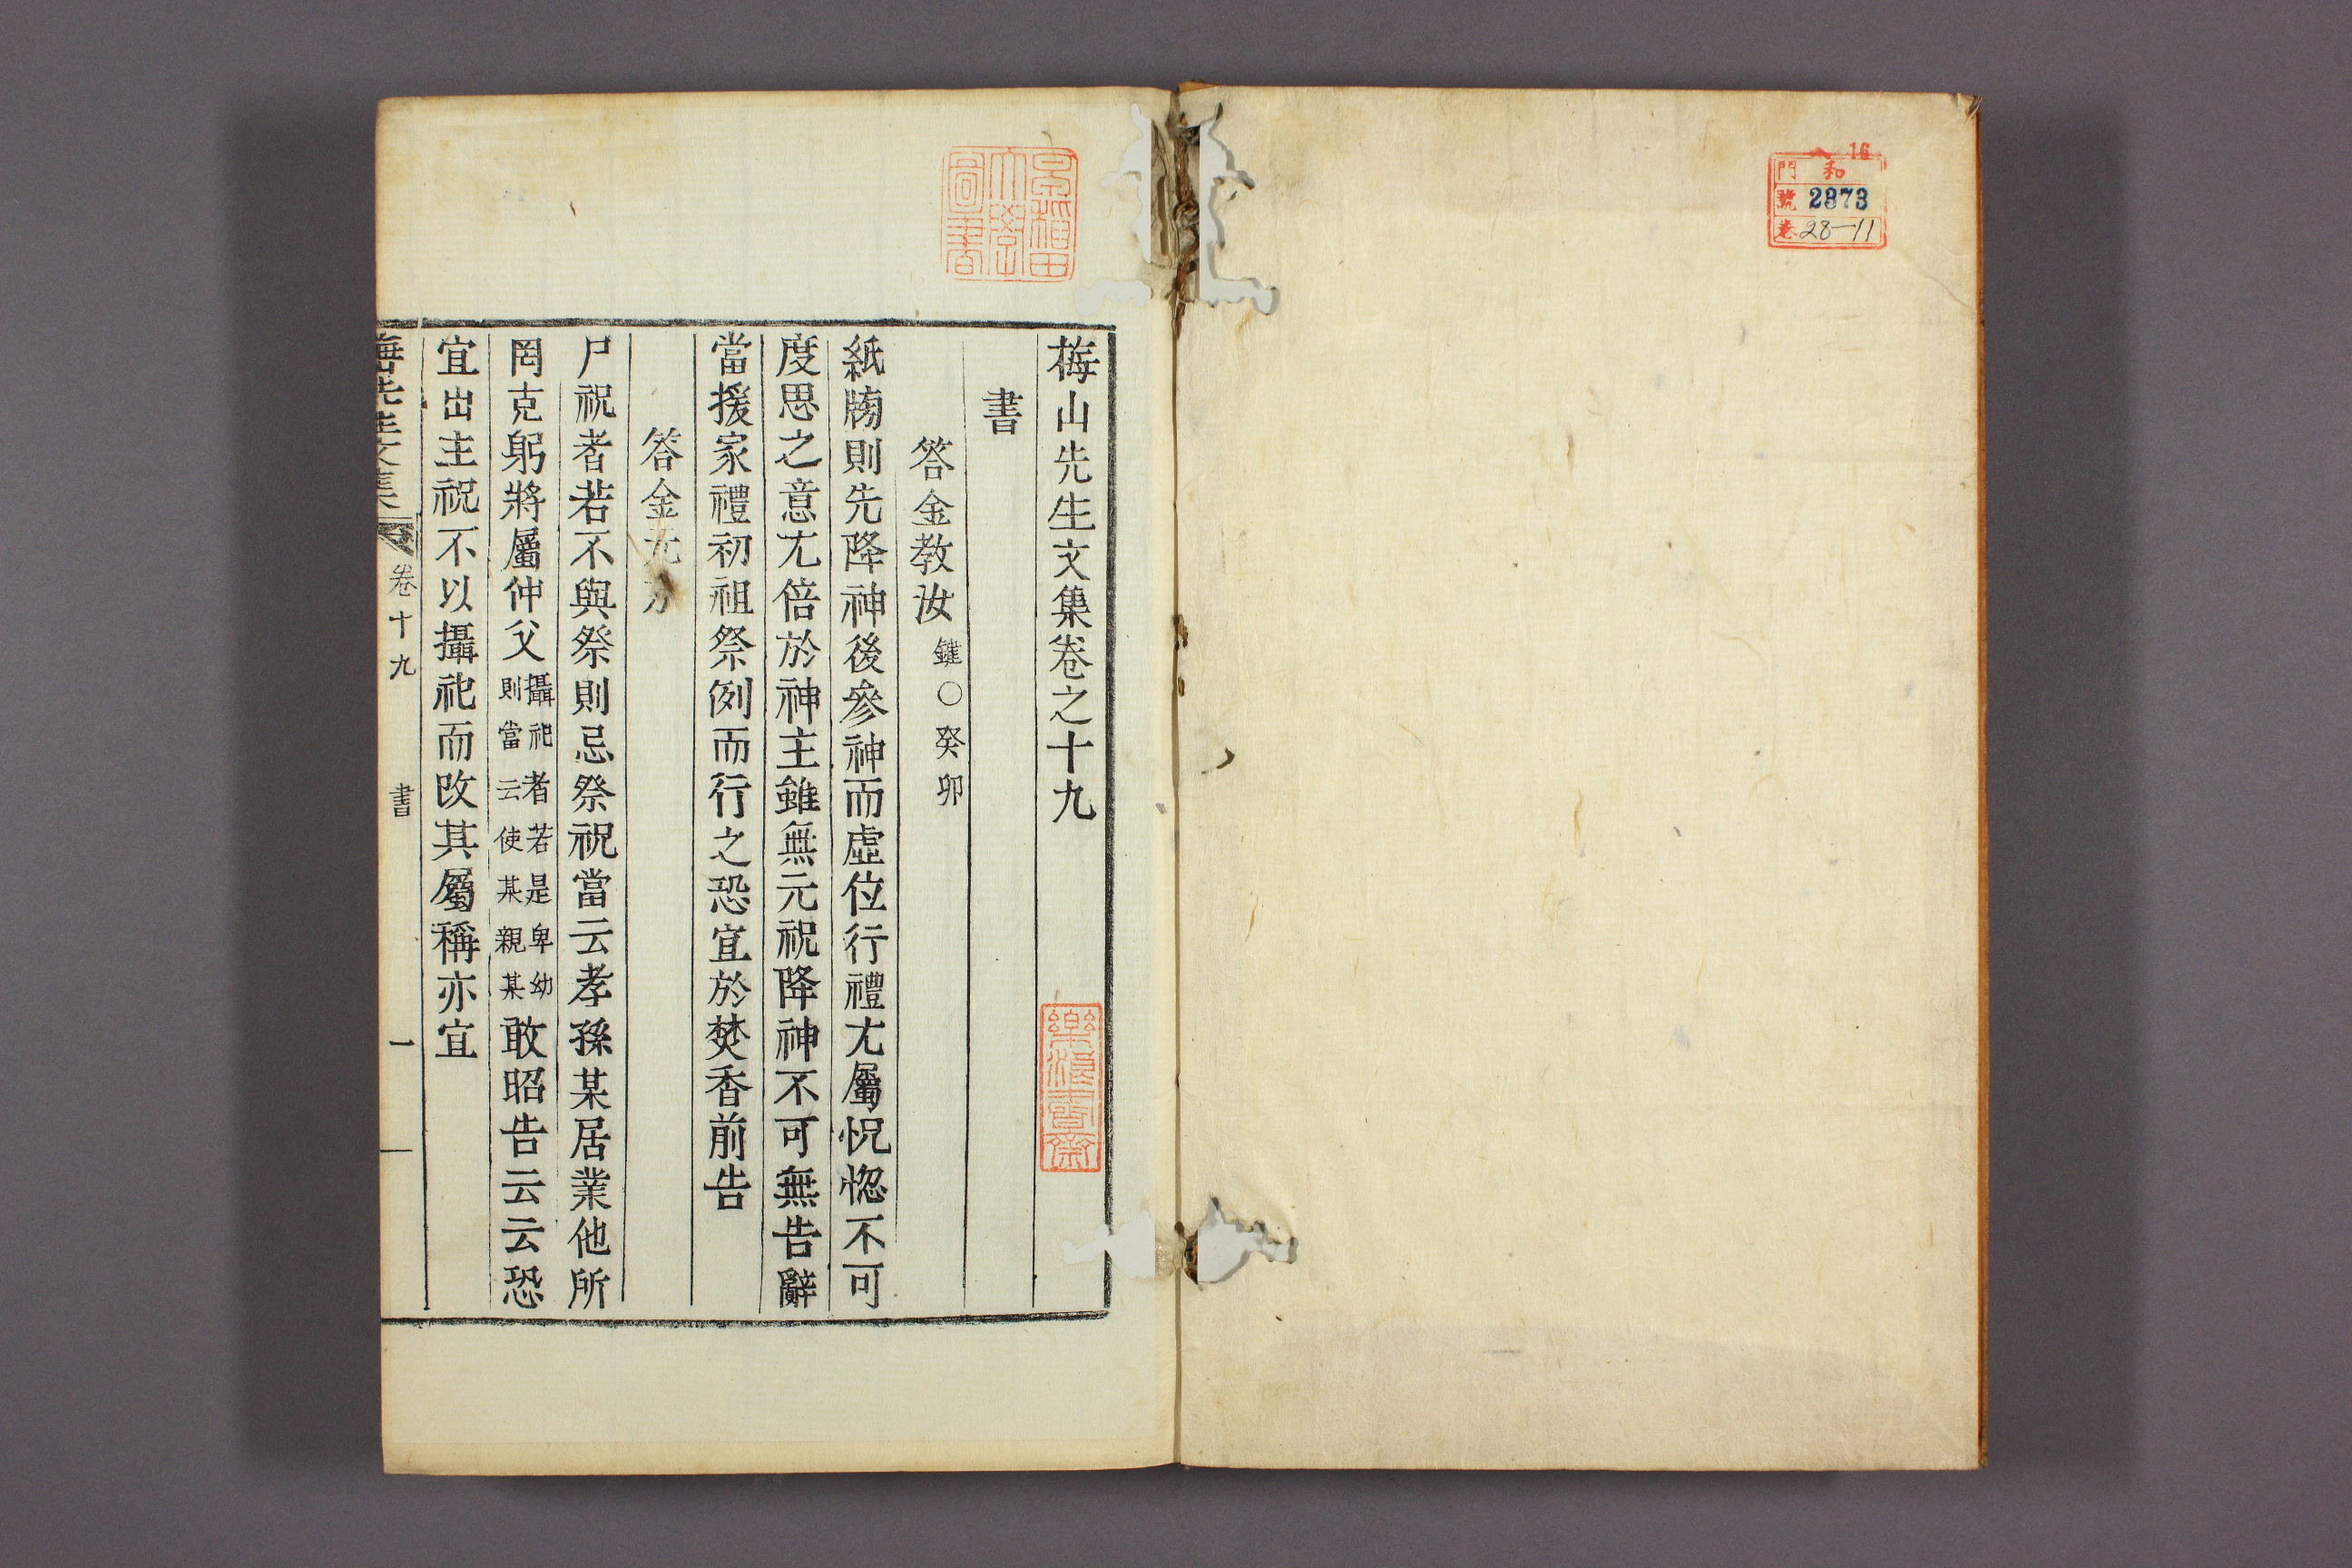 16
和
門
號 2873
卷 28-11
早稲田大學圖書
梅山先生文集卷之十九
書
答金教汝 鏶○癸卯
紙牓則先降神後參神而虛位行禮尤屬怳惚不可
度思之意尤倍於神主雖無元祝降神不可無告辭
當援家禮初祖祭例而行之恐宜於焚香前告
答金元
尸祝者若不與祭則忌祭祝當云孝孫某居業他所
罔克躬將屬仲父攝祀者若是卑幼則當云使某親某敢昭告云云恐
宜出主祝不以攝祀而改其屬稱亦宜
梅山先生文集 卷十九 書 一